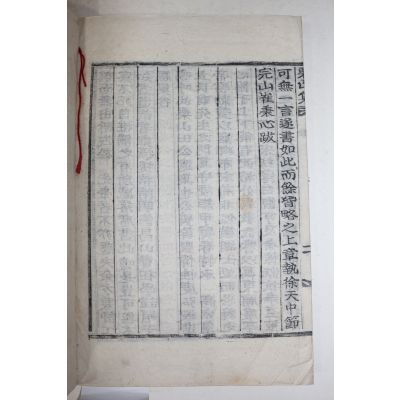 可無一言遂書如此而餘皆略之上章執徐天中節
完山崔秉心跋